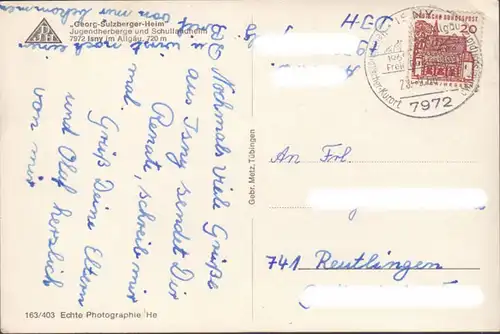 „Georg-Sulzberger-Heim"
Jugendherberge und Schullandheim
7972 Isny im Allgäu, 720 m
Nochmals viele Grüße
aus Isny sendet Dir
Renate, schreibe mir
mal. Grüß Deine Eltern
und Olaf herzlich
von mir
Du wirst noch einen
Brief von mir bekommen
DJH
DEUTSCHE BUNDESPOST
20
7972
Gebr. Metz, Tübingen
An Frl.
741 Reutlingen
163/403 Echte Photographie He